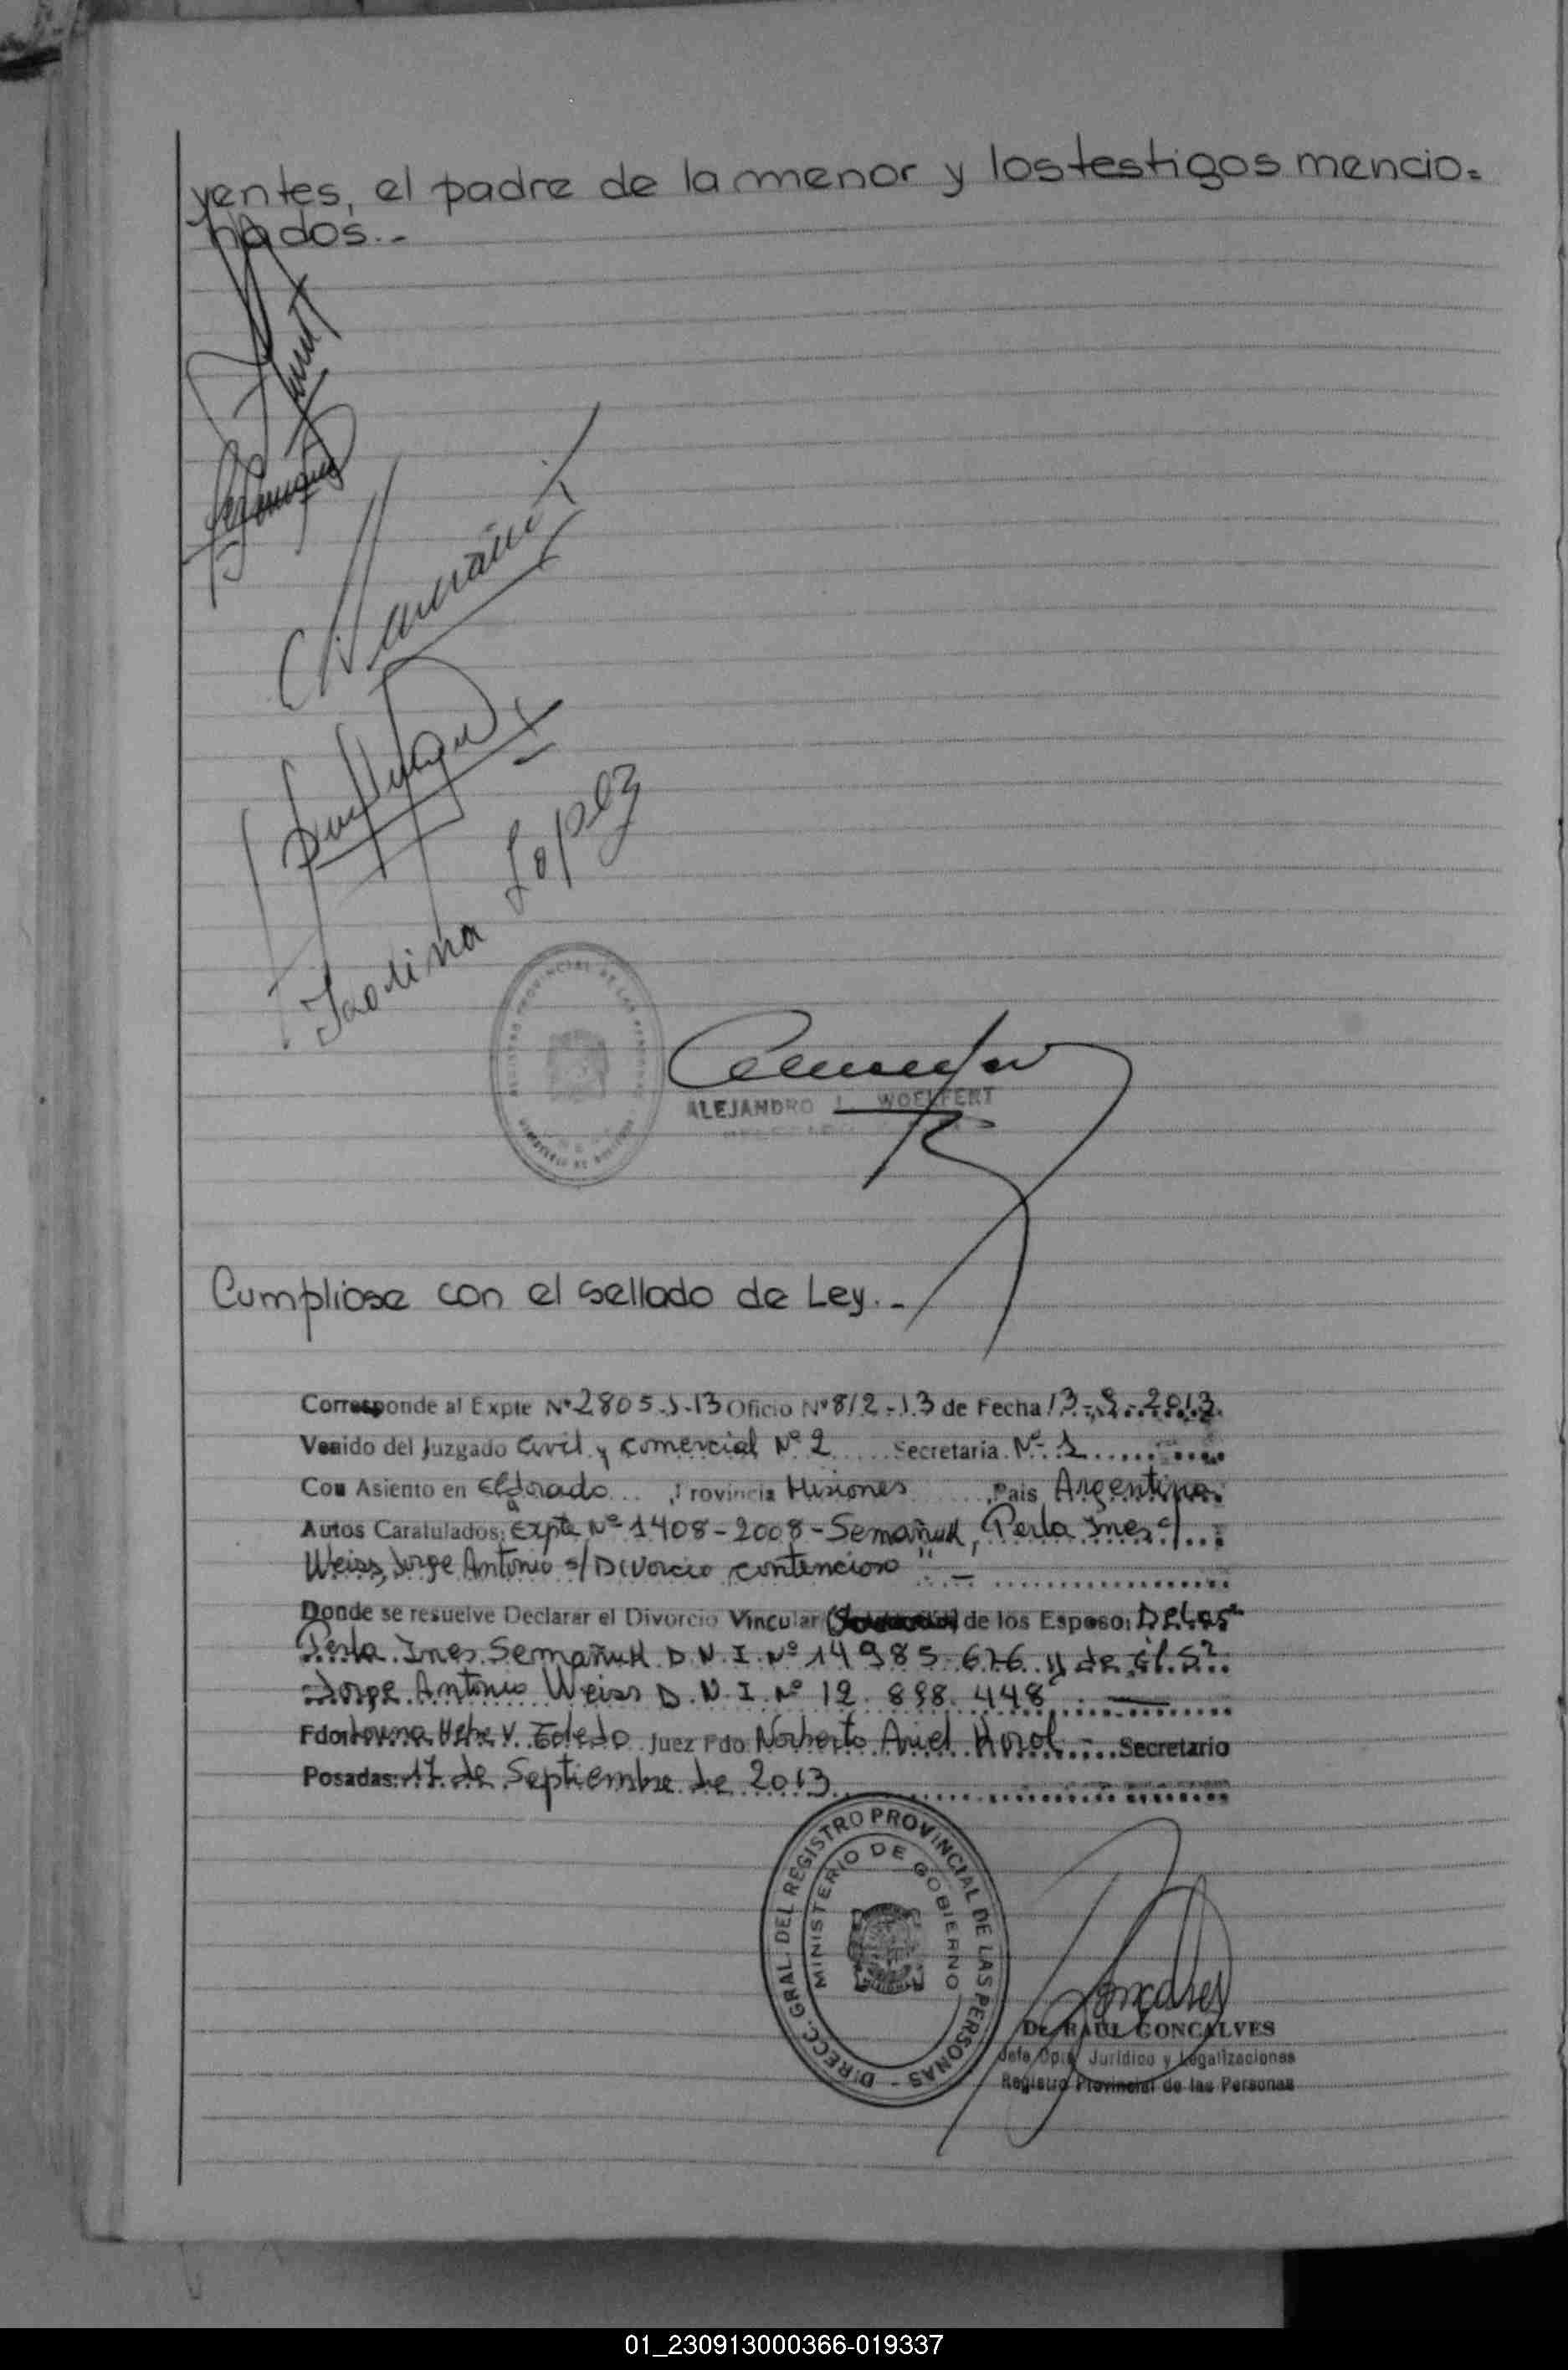 yentes, el padre de la menor y los testigos mencio=
nados.-
Lopez
ALEJANDRO L. WOELFERT
Cumpliose con el sellado de Ley.-
Corresponde al Expte Nº 2805-J-13 Oficio Nº 812-13 de Fecha 13-9-2013
Venido del Juzgado Civil y Comercial Nº 2 Secretaria Nº 1
Con Asiento en Eldorado, Provincia Misiones, Pais Argentina
Autos Caratulados: Expte Nº 1408-2008-Semañuk, Perla Ines c/
Weiss, Jorge Antonio s/ Divorcio contencioso".-
Donde se resuelve Declarar el Divorcio Vincular de los Esposo: De la Srª
Perla Ines Semañuk D.N.I. Nº 14 985 626 y de el Sº
Jorge Antonio Weiss D.N.I. Nº 12.898.448
Fdo: V. Toledo Juez Fdo Norberto Ariel Korol Secretario
Posadas: 17 de Septiembre de 2013
DIRECC. GRAL. DEL REGISTRO PROVINCIAL DE LAS PERSONAS -
MINISTERIO DE GOBIERNO
Dr. RAUL GONCALVES
Jefe Dpto. Jurídico y Legalizaciones
Registro Provincial de las Personas
01_230913000366-019337